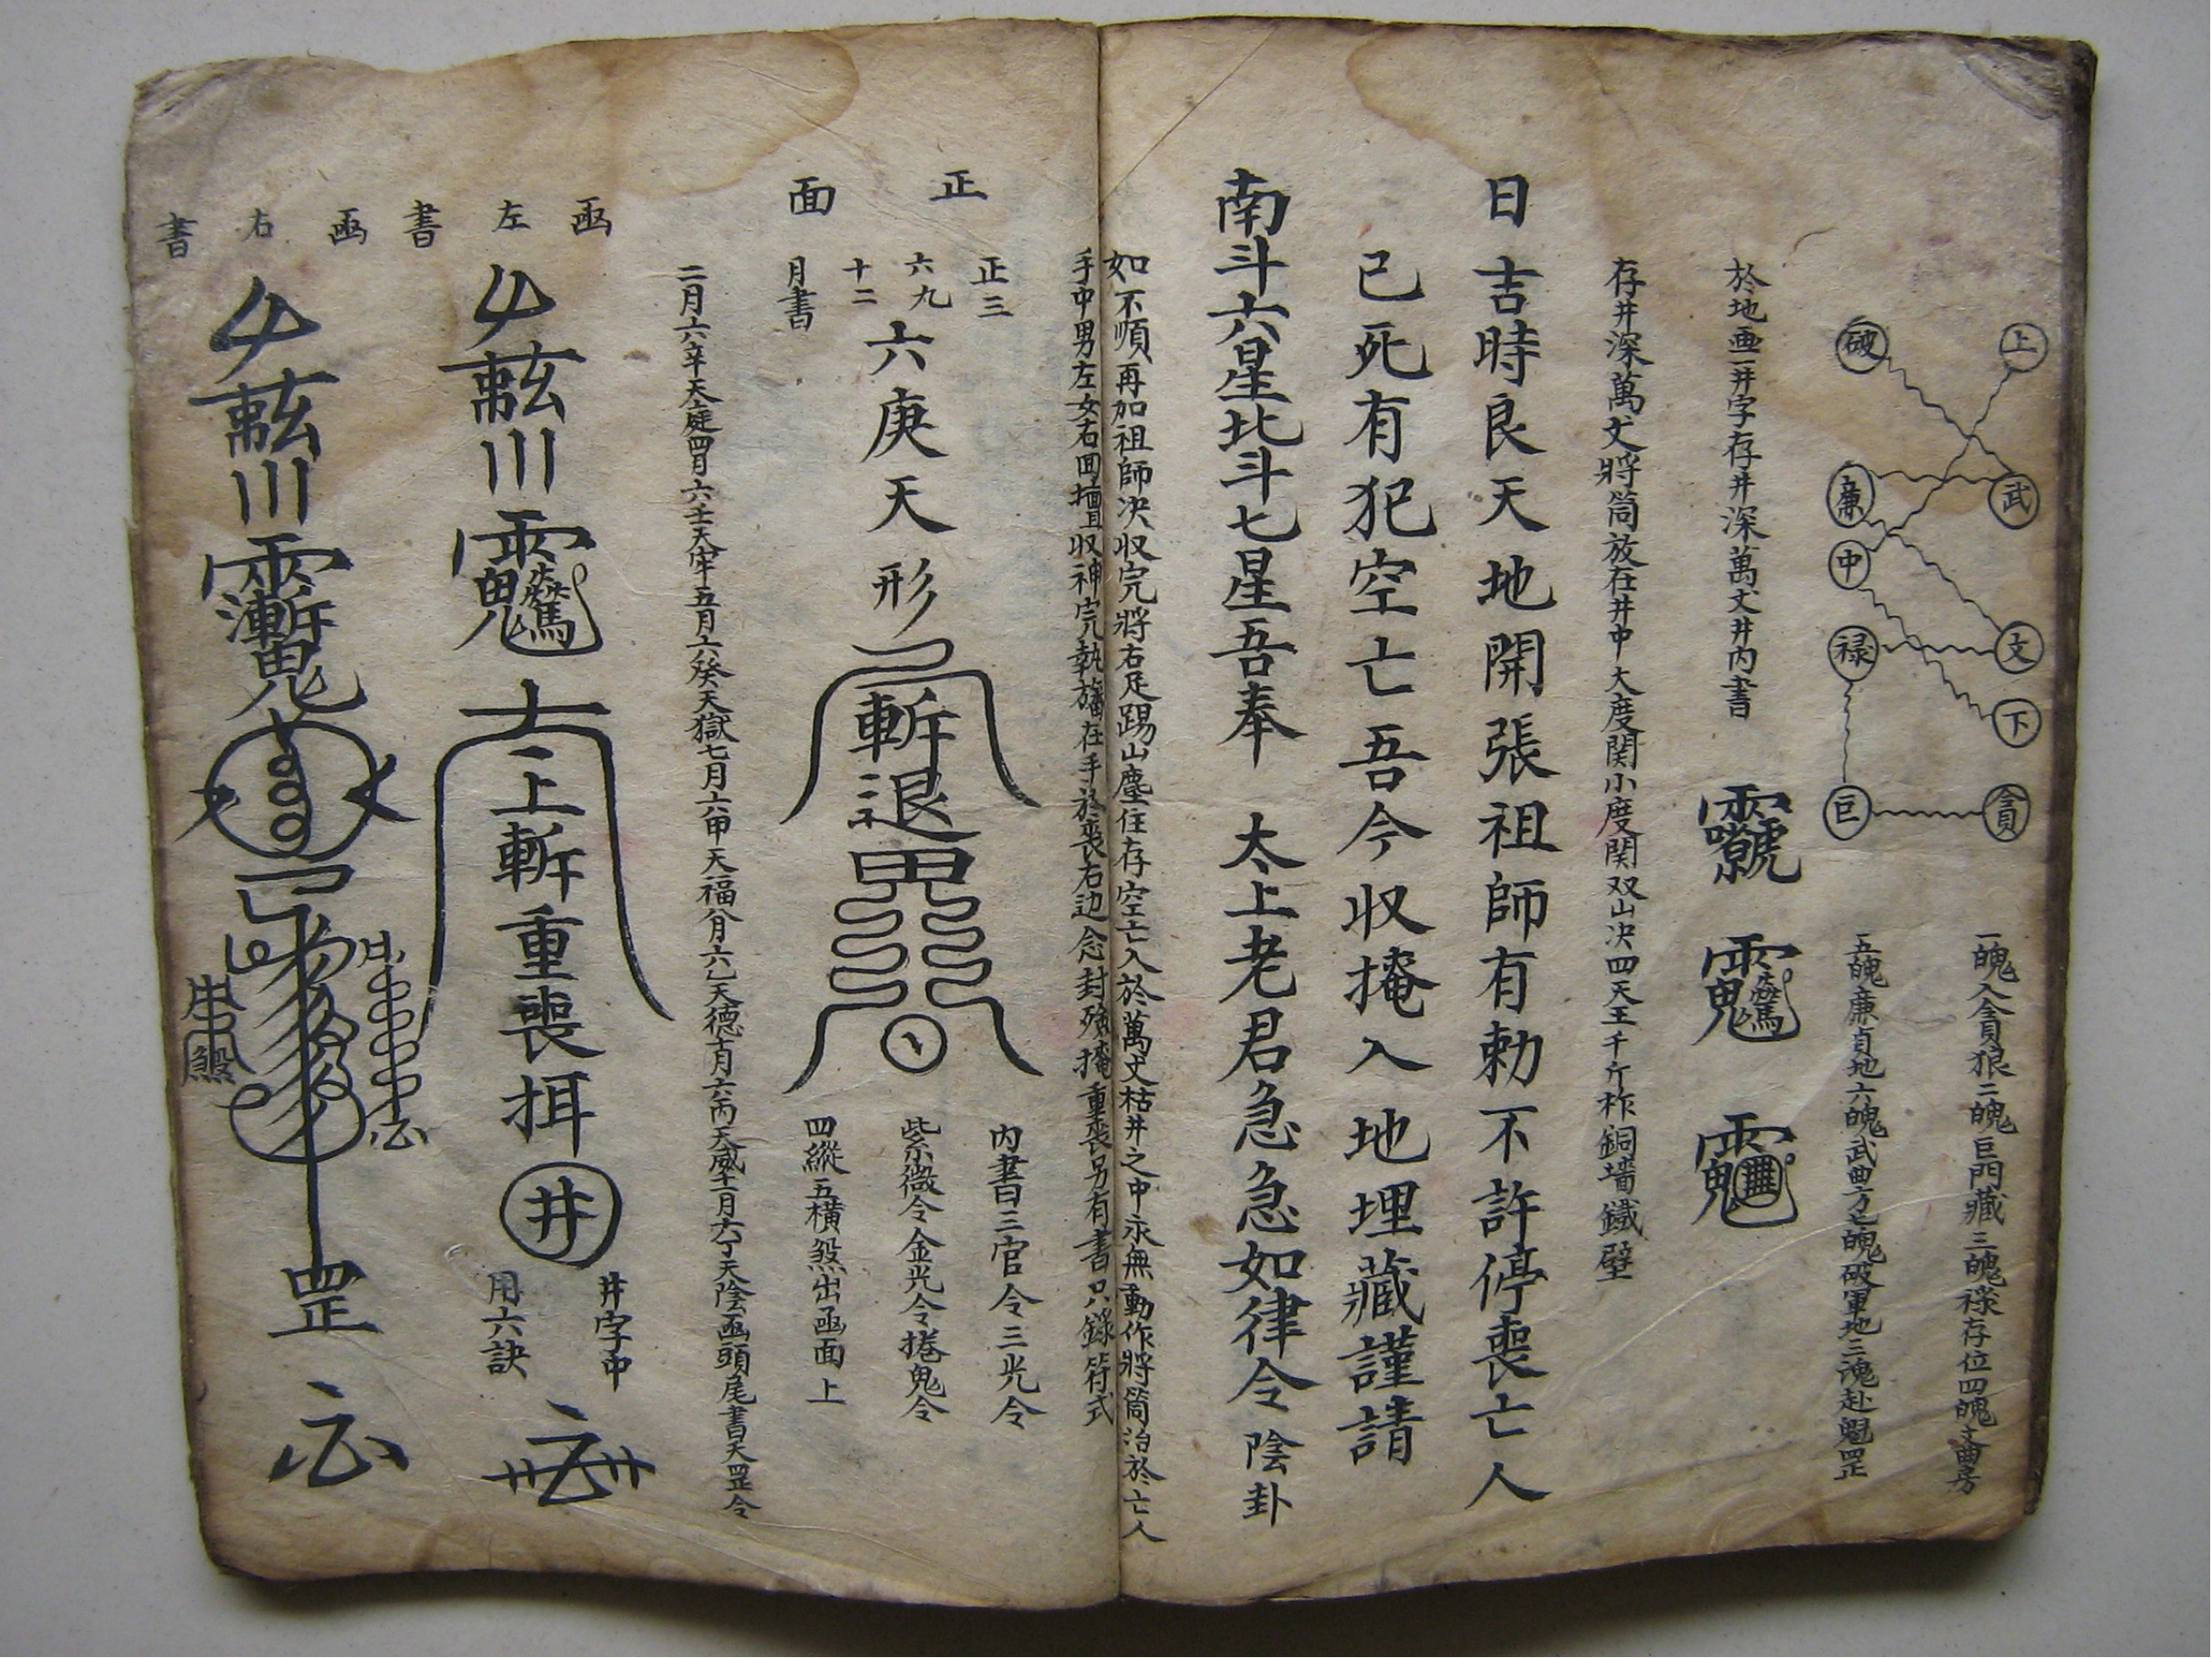 上
武
文
下
貪
破
廉
中
祿
巨
一魄入貪狼二魄巨門藏三魄祿存位四魄文曲房
五魄廉貞地六魄武曲方七魄破軍地三魂赴魁罡
於地画一井字存井深萬丈井內書
存井深萬丈將筒放在井中大度関小度関双山决四天王千斤柞銅墻鐵壁
日吉時良天地開張祖師有勅不許停喪亡人
已死有犯空亡吾今収掩入地埋藏謹請
南斗六星北斗七星吾奉 太上老君急急如律令陰卦
如不順再加祖師决収完將右足踢山塵住存空亡入於萬丈枯井之中永無動作將筒治於亡人
手中男左女右回壇収神完執旛在手於喪右边念封殮掩重喪另有書只錄符式
正面
正三
六九
十二
月書
六庚天形
斬退
內書三官令三光令
紫微令金光令捲鬼令
四縱五橫煞出函面上
二月六辛天庭四月六壬天牢五月六癸天獄七月六甲天福八月六乙天德十月六丙天威十一月六丁天陰函頭尾書天罡令
函左書
上斬重喪
井
井字中
用六訣
函右書
罡